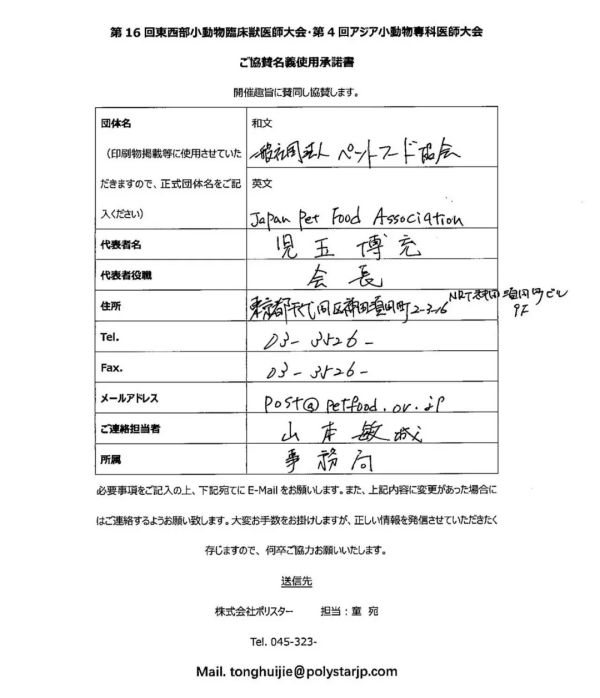 第16回東西部小動物臨床獣医師大会・第4回アジア小動物専科医師大会
ご協賛名義使用承諾書
開催趣旨に賛同し協賛します。
団体名
(印刷物掲載等に使用させていた
だきますので、正式団体名をご記
入ください)
和文
一般社団法人 ペットフード協会
英文
Japan Pet Food Association
代表者名
児玉博充
代表者役職
会長
住所
東京都千代田区神田須田町2-3-16
NRT神田須田町ビル
9F
Tel.
03-3526-
Fax.
03-3526-
メールアドレス
post@petfood.or.jp
ご連絡担当者
山本敏
所属
事務局
必要事項をご記入の上、下記宛てにE-Mailをお願いします。また、上記内容に変更があった場合に
はご連絡するようお願い致します。大変お手数をお掛けしますが、正しい情報を発信させていただきたく
存じますので、何卒ご協力お願いいたします。
送信先
株式会社ポリスター 担当:童 宛
Tel. 045-323-
Mail. tonghuijie@polystarjp.com